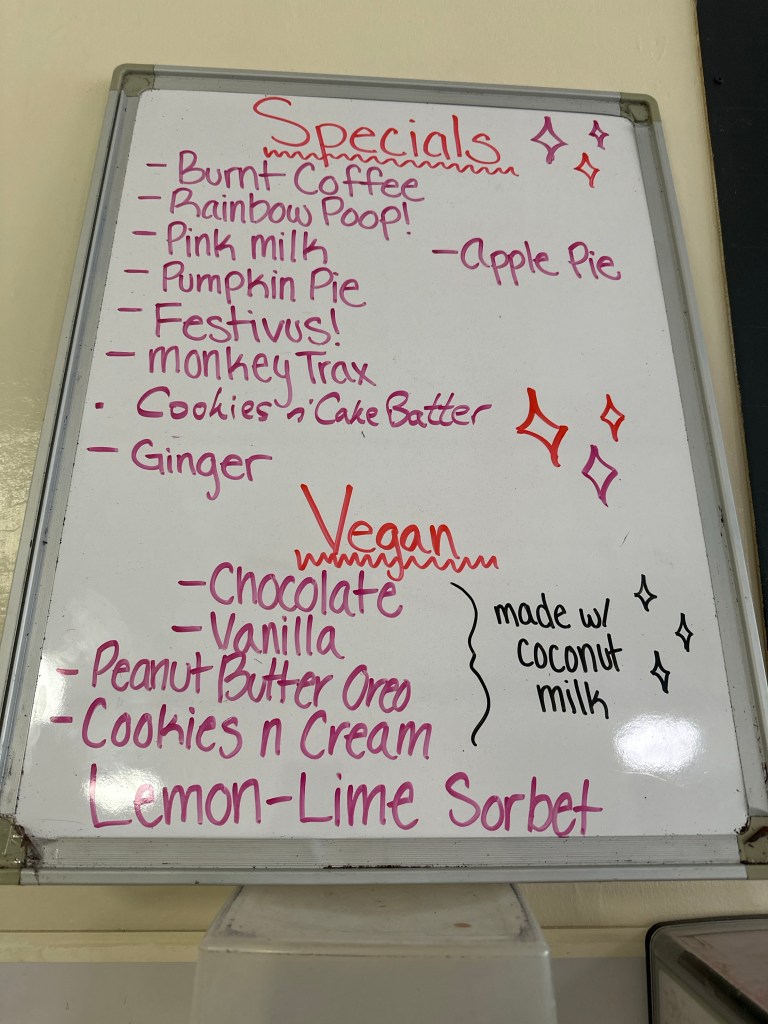 Specials
- Burnt Coffee
- Rainbow Poop!
- Pink milk
- Apple Pie
- Pumpkin Pie
- Festivus!
- monkey Trax
· Cookies n' Cake Batter
- Ginger
Vegan
- Chocolate
- Vanilla
- Peanut Butter Oreo
- Cookies n Cream
made w/
coconut
milk
Lemon-Lime Sorbet